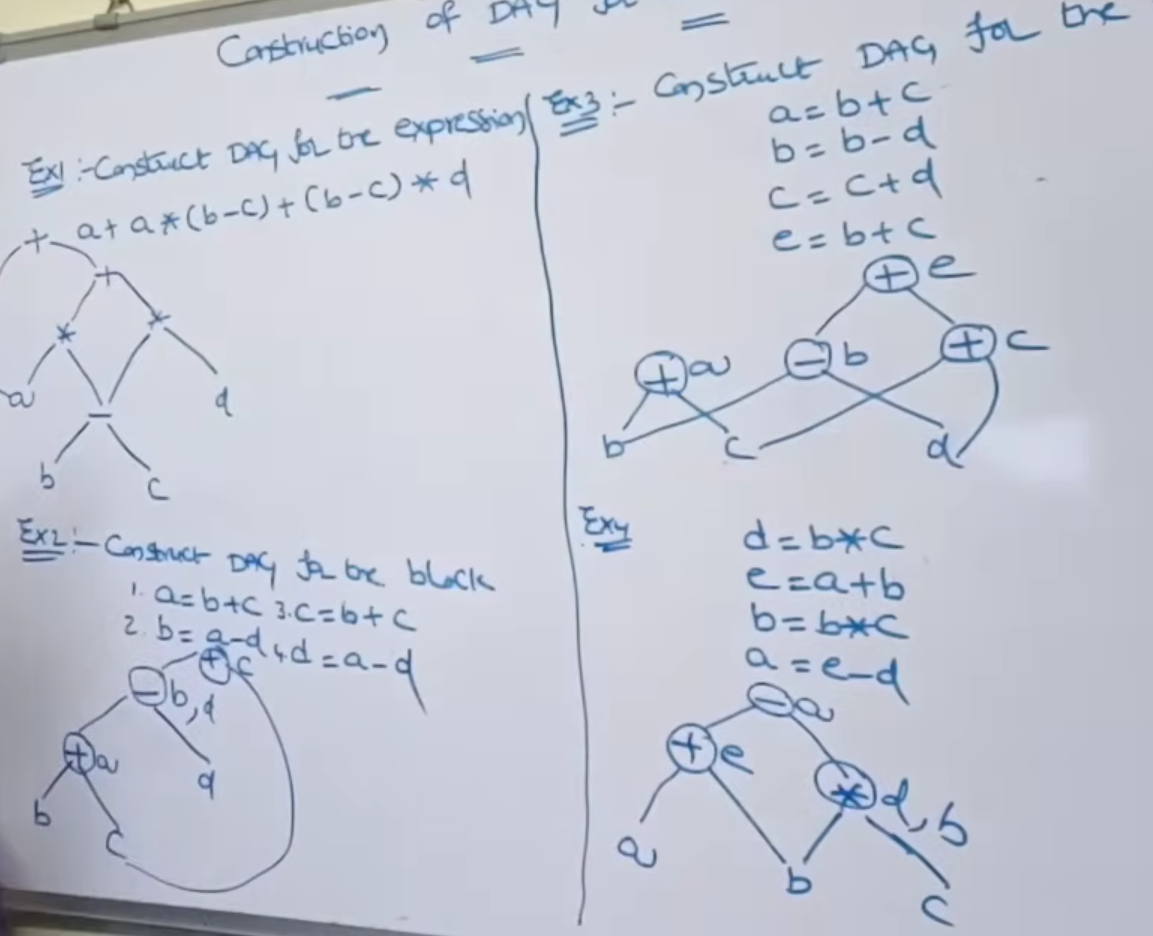 Construction of DAG
Ex1:- Construct DAG for the expression
a + a * (b-c) + (b-c) * d
+
+
* *
a - d
b c
Ex2:- Construct DAG for the block
1. a=b+c 3. c=b+c
2. b=a-d 4 d=a-d
+ c
- b,d
+ a d
b c
Ex3:- Construct DAG for the
a=b+c
b=b-d
c=c+d
e=b+c
+ e
+ a - b + c
b c d
Ex4
d=b*c
e=a+b
b=b*c
a=e-d
- a
+ e * d,b
a b c